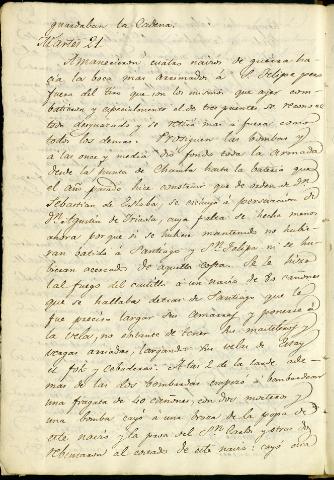 guardaban la Cadena.
Martes 21.
Amanecieron cuatro navios de guerra ha-
cia la boca mas arrimados à Sn. Felipe pero
fuera del tiro que son los mismos que ayer com-
batieron y especialmente el de tres puentes se reconoce
todo desguazado y se retiró mas a fuera como
todos los demas. Prosiguen las bombas y
a las once y media dió fondo toda la armada
desde la punta de Chamba hasta la bateria que
el año pasado hice construir que de orden de Dn.
Sebastian de Eslaba, se excluyó a persuacion de
Dn. Agustin de Iriarte, cuya falta se hecha menos
ahora porque si se hubiera mantenido no hubie-
ran batido à Santiago y Sn. Felipe ni se hu-
bieran acercado de aquella costa. Se le hizo
tal fuego del castillo à un navio de 80 cañones
que se hallaba detras de Santiago que le
fue preciso largar sus amarras y ponerse à
la vela, no obstante de tener sus masteleros y
vergas arriadas, largando sus velas de Estay
el fok y cebaderas: A las 2 de la tarde ade-
mas de las dos bombardas empezó à bombardear
una fragata de 40 cañones, con dos morteros y
una bomba cayó à una broza de la popa de
este navio y la pasa del Sn. Carlos y otras dos
rebentaron al costado de este navio: cayó otra